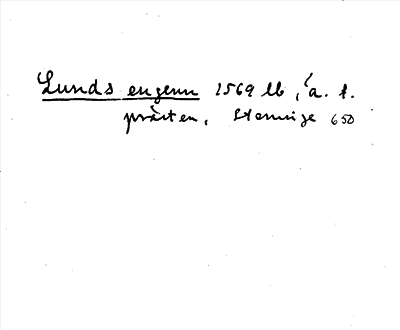 Lunds engenn 1569 lb, a. f.
prästen, Stenninge 650